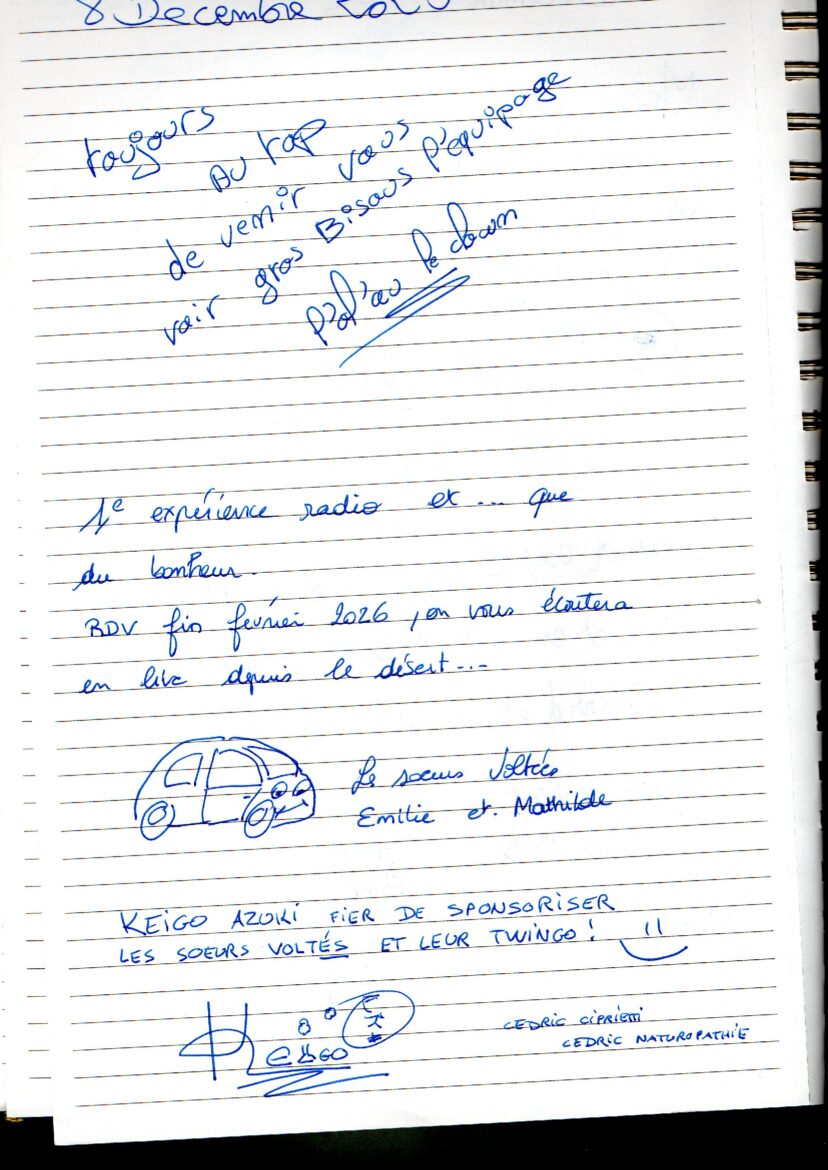 8 Decembre
toujours
Au top
de venir vous
voir gros Bisous l'équipage
p'tit le clown
1e expérience radio et ... que
du bonheur.
RDV fin février 2026, on vous écoutera
en live depuis le désert...
Le soeurs Voltées
Emilie et. Mathilde
KEIGO AZUKI FIER DE SPONSORISER
LES SOEURS VOLTÉS ET LEUR TWINGO !
Keigo
CEDRIC
CEDRIC NATUROPATHIE